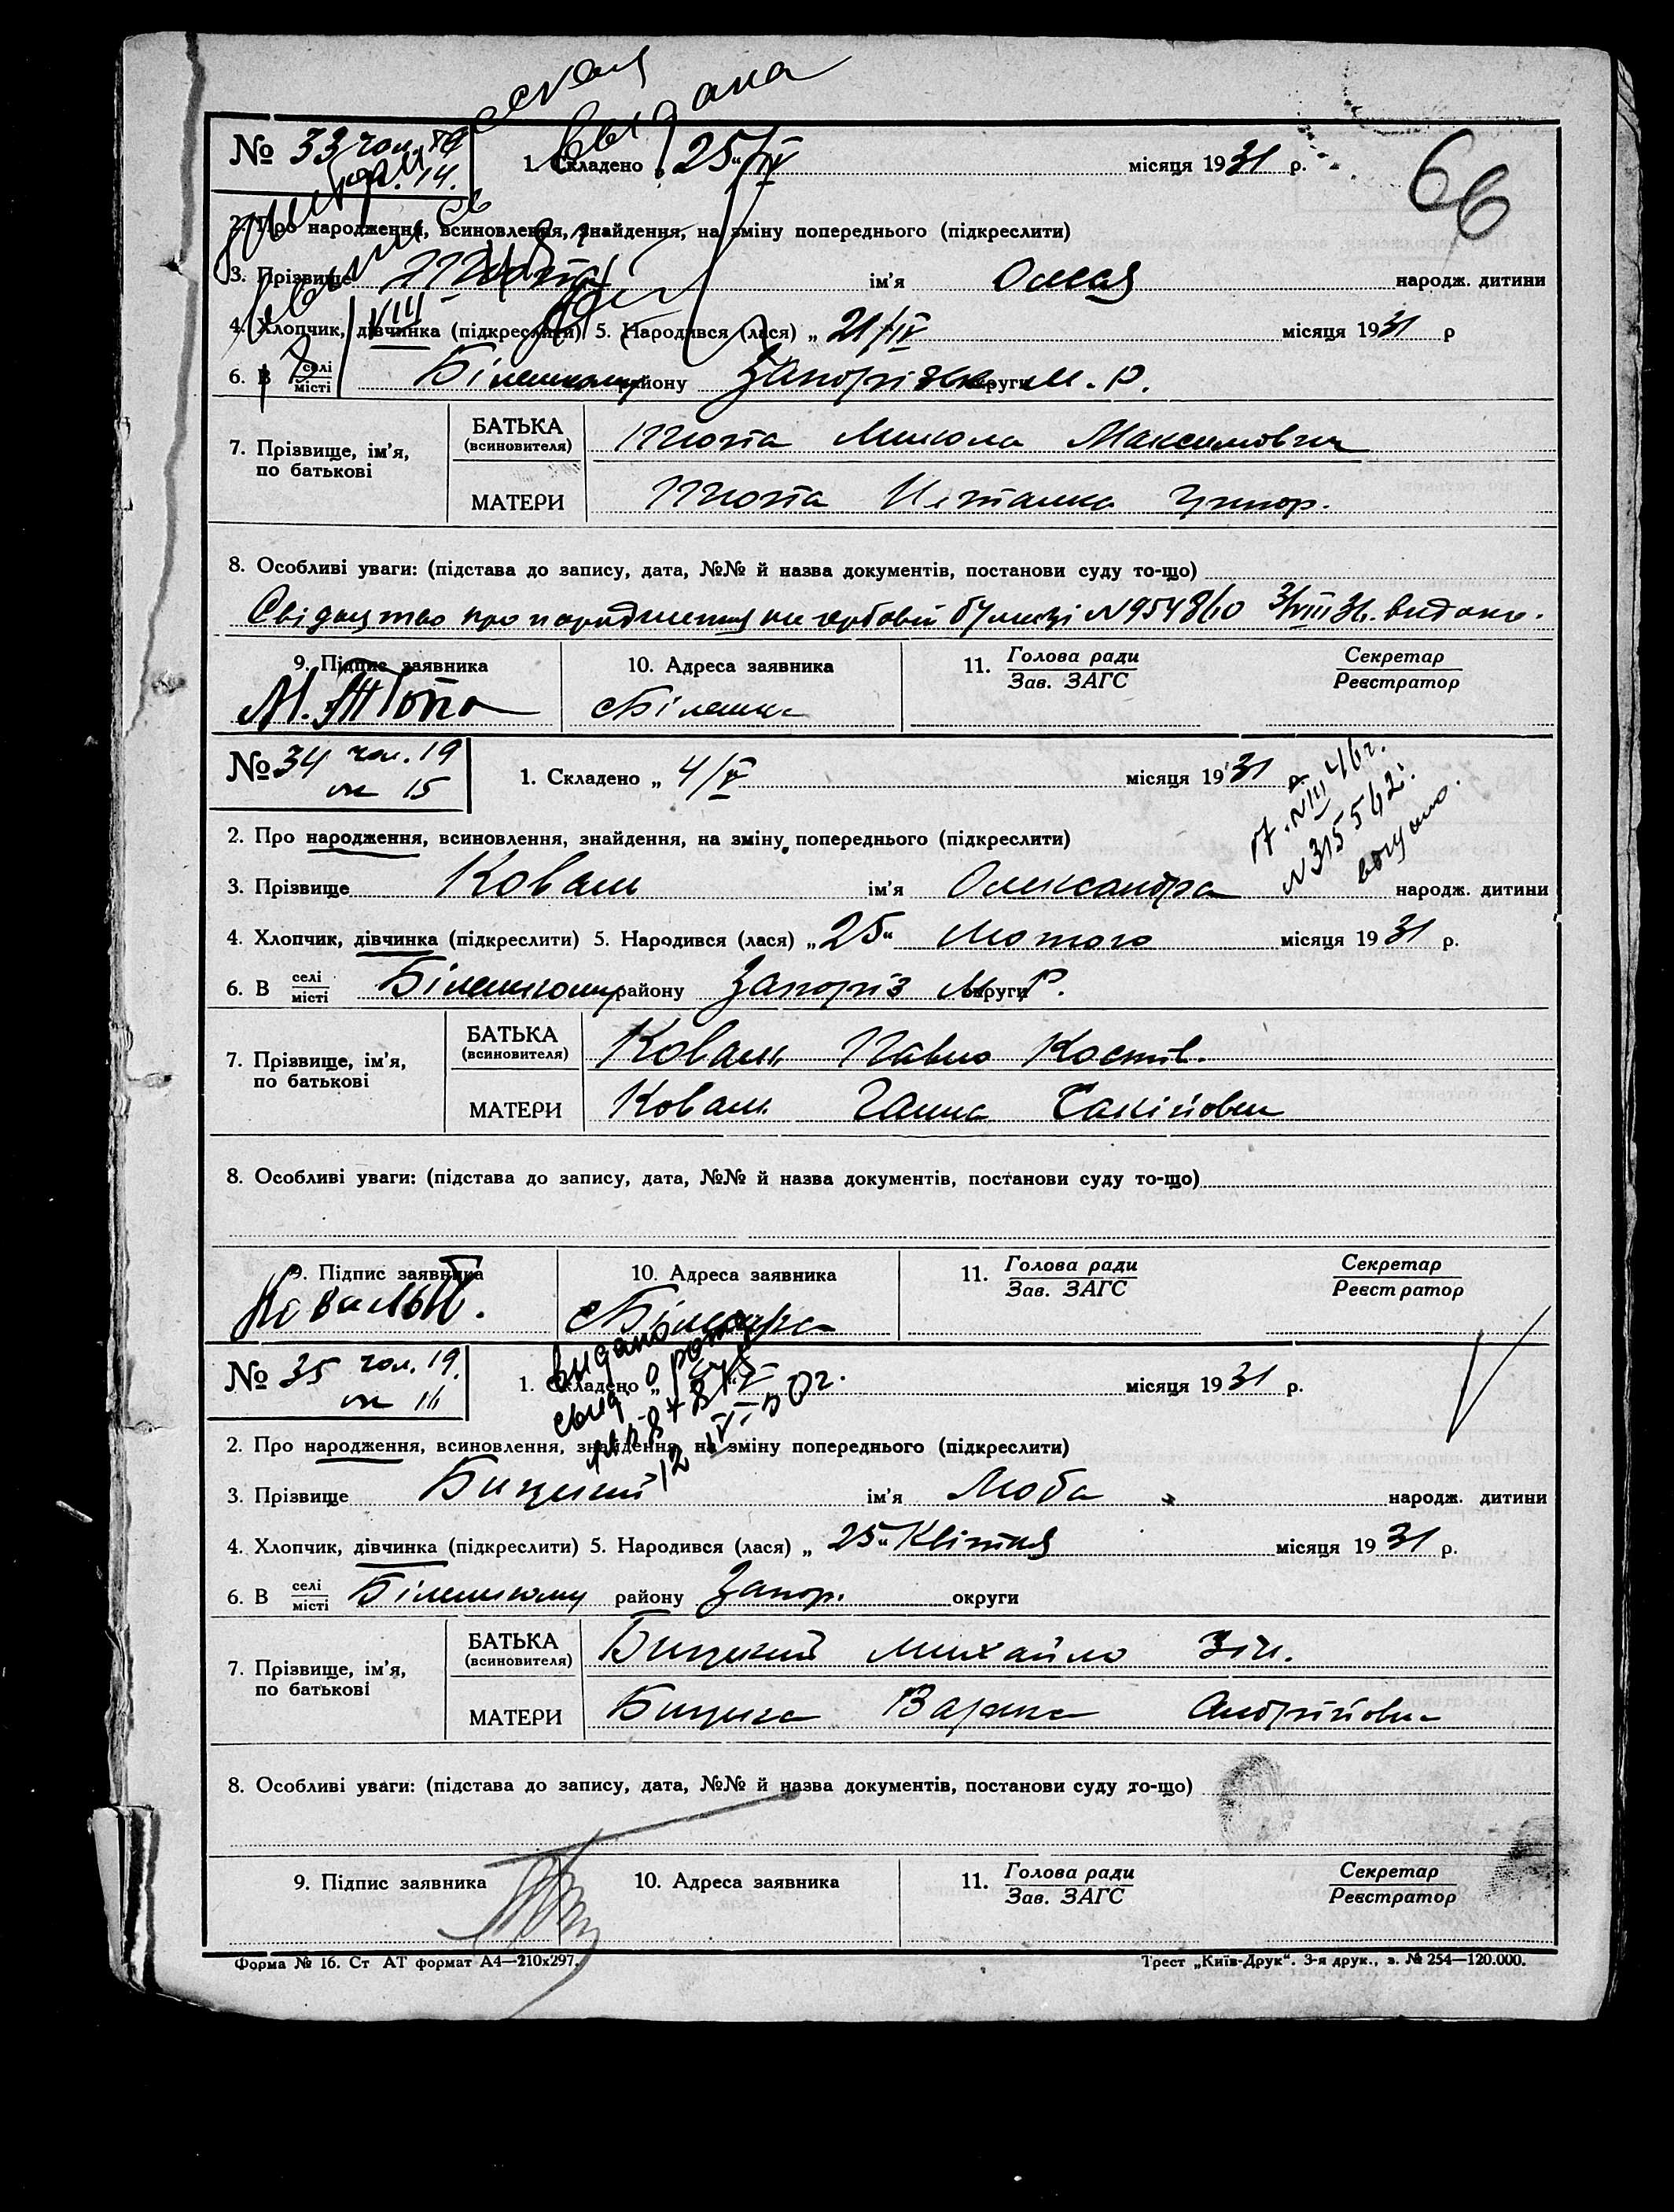 66
№ 33 чол. 19
жін. 14.
1. Складено „ 25 “/IV місяця 1931 р.
выдана
2. Про народження, всиновлення, знайдення, на зміну попереднього (підкреслити)
3. Прізвище ім'я народж. дитини
4. Хлопчик, дівчинка (підкреслити) 5. Народився (лася) „ 21/IV місяця 1931 р
6. В селі/місті Біленькому району Запорізьк округи М. Р.
7. Прізвище, ім'я, по батькові
БАТЬКА (всиновителя) Микола Максимович
МАТЕРИ Григор.
8. Особливі уваги: (підстава до запису, дата, №№ й назва документів, постанови суду то-що)
Свідоцтво про народження на гербовій бумазі №9548/10 3/VIII 31. видано.
9. Підпис заявника 10. Адреса заявника 11. Голова ради/Зав. ЗАГС Секретар/Реєстратор
Біленька
№ 34 чол. 19
ж 15
1. Складено „ 4/V місяця 1931 р.
17.VIII 46 г.
№ 315542.
2. Про народження, всиновлення, знайдення, на зміну попереднього (підкреслити)
3. Прізвище Коваль ім'я Олександра народж. дитини
4. Хлопчик, дівчинка (підкреслити) 5. Народився (лася) „ 25 “ Лютого місяця 1931 р.
6. В селі/місті Біленькому району Запоріз округи М Р.
7. Прізвище, ім'я, по батькові
БАТЬКА (всиновителя) Коваль Павло Костят.
МАТЕРИ Коваль Ганна
8. Особливі уваги: (підстава до запису, дата, №№ й назва документів, постанови суду то-що)
9. Підпис заявника 10. Адреса заявника 11. Голова ради/Зав. ЗАГС Секретар/Реєстратор
Коваль П. Біленька
№ 35 чол. 19.
ж 16
1. Складено „ “ V місяця 1931 р.
видано
12 IV 50 г.
2. Про народження, всиновлення, знайдення, на зміну попереднього (підкреслити)
3. Прізвище Бицький ім'я Люба народж. дитини
4. Хлопчик, дівчинка (підкреслити) 5. Народився (лася) „ 25 “ Квітня місяця 1931 р.
6. В селі/місті Біленькому району Запор. округи
7. Прізвище, ім'я, по батькові
БАТЬКА (всиновителя) Бицький Михайло
МАТЕРИ Бицька Варька Андріївна
8. Особливі уваги: (підстава до запису, дата, №№ й назва документів, постанови суду то-що)
9. Підпис заявника 10. Адреса заявника 11. Голова ради/Зав. ЗАГС Секретар/Реєстратор
Форма № 16. Ст АТ формат А4—210х297. Трест „Київ-Друк“. 3-я друк., з. № 254—120.000.